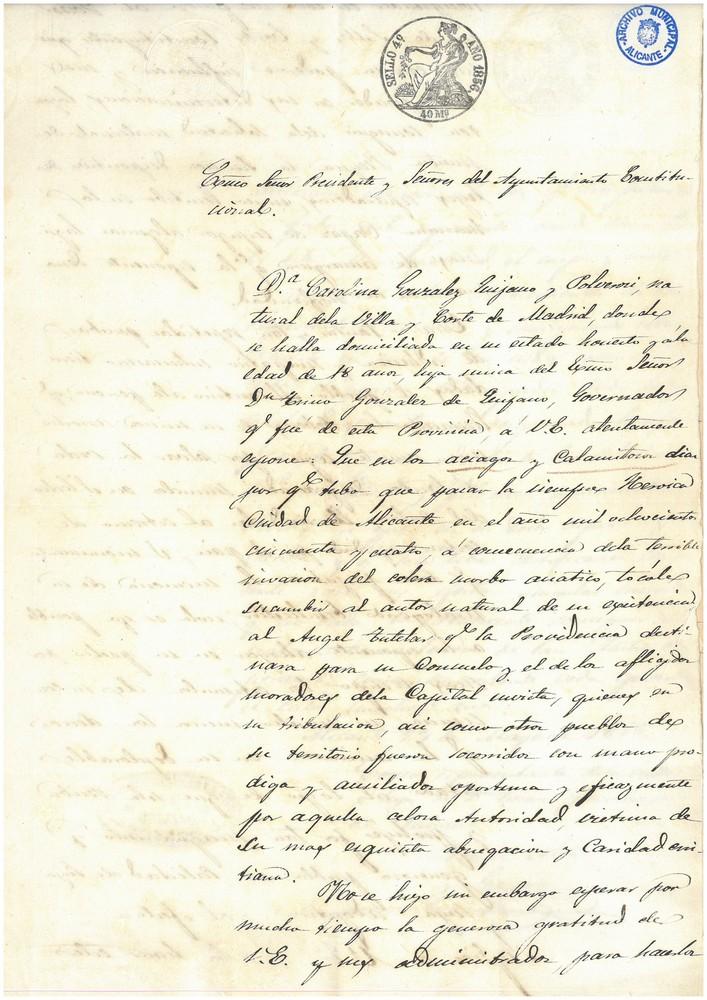 SELLO 4º AÑO 1856.
40 Ms
ARCHIVO MUNICIPAL
ALICANTE
Exmo Señor Presidente y Señores del Ayuntamiento Constitu-
cional.
D.ª Carolina Gonzalez Quijano y Polveroni, na
tural dela Villa y Corte de Madrid, donde
se halla domiciliada en su estado honesto y ála
edad de 18 años, hija unica del Exmo Señor
Dn Trino Gonzalez de Quijano, Governador
qe fue de esta Provincia, á V.E. atentamente
espone: Que en los aciagos y Calamitosos dias
por qe tubo que pasar la siempre Heroica
Ciudad de Alicante en el año mil ochocientos
cincuenta y cuatro, á consecuencia dela terrible
invasion del colera morbo asiatico, tócale
sucumbir al autor natural de su existencia,
al Angel Tutelar qe la Providencia desti-
nara para su Consuelo y el de los afligidos
moradores dela Capital invicta, quienes en
su tribulacion, asi como otros pueblos de
su territorio fueron socorridos con mano pro-
diga y ausiliados oportuna y eficazmente
por aquella celosa Autoridad, victima de
su mas esquisita abnegacion y Caridad cris-
tiana.
No se hizo sin embargo esperar por
mucho tiempo la generosa gratitud de
V.E. y sus administrados, para hacerlos